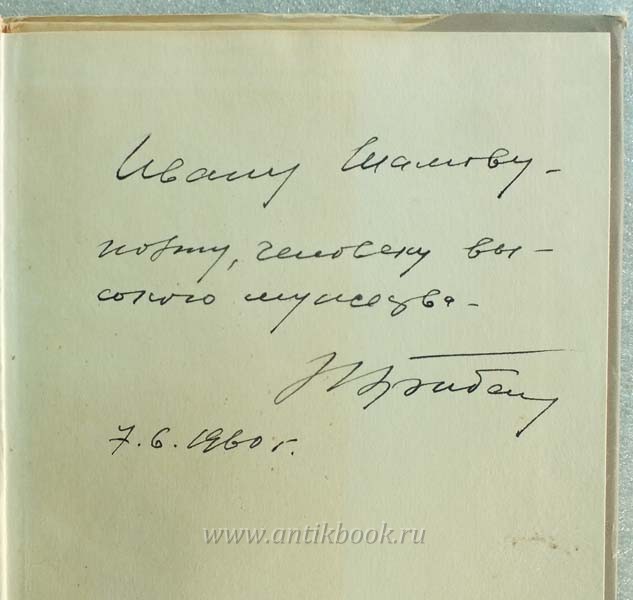 Ивану Шамову -
поэту, человеку вы-
сокого мужества -
Н Грибач
7.6.1960 г.
www.antikbook.ru